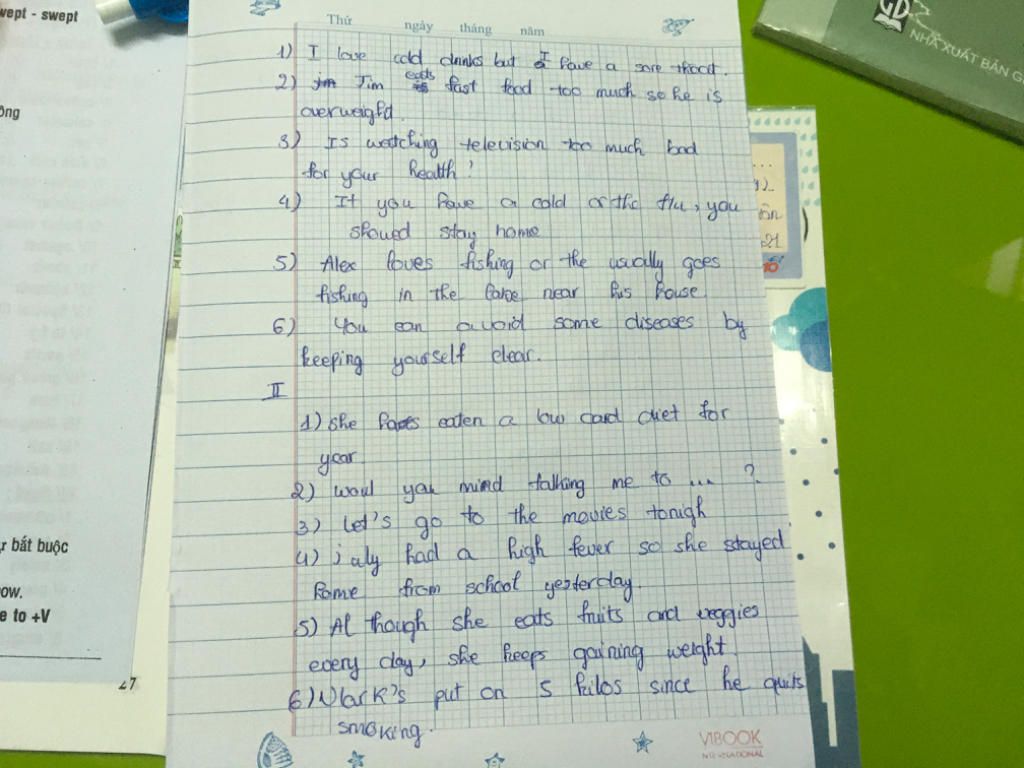 wept - swept
ông
ự bắt buộc
ow.
e to +V
27
Thứ ngày tháng năm
1) I love cold drinks but I have a sore thoat.
2) Jim eats fast food too much so he is
overweighd.
3) Is watching television too much bad
for your health?
4) If you have a cold or the flu, you
showed stay home
5) Alex loves fishing or the usually goes
fishing in the lake near his house.
6) You can avoid some diseases by
keeping yourself clear.
II
1) she has eaten a low card diet for
year.
2) woul you mind talking me to ... ?
3) Let's go to the movies tonigh
4) july had a high fever so she stayed
home from school yesterday.
5) Al though she eats fruits and veggies
every day, she keeps gaining weight.
6) Mark's put on 5 kilos since he quits
smoking.
VIBOOK
INTERNATIONAL
GD
NHÀ XUẤT BẢN G